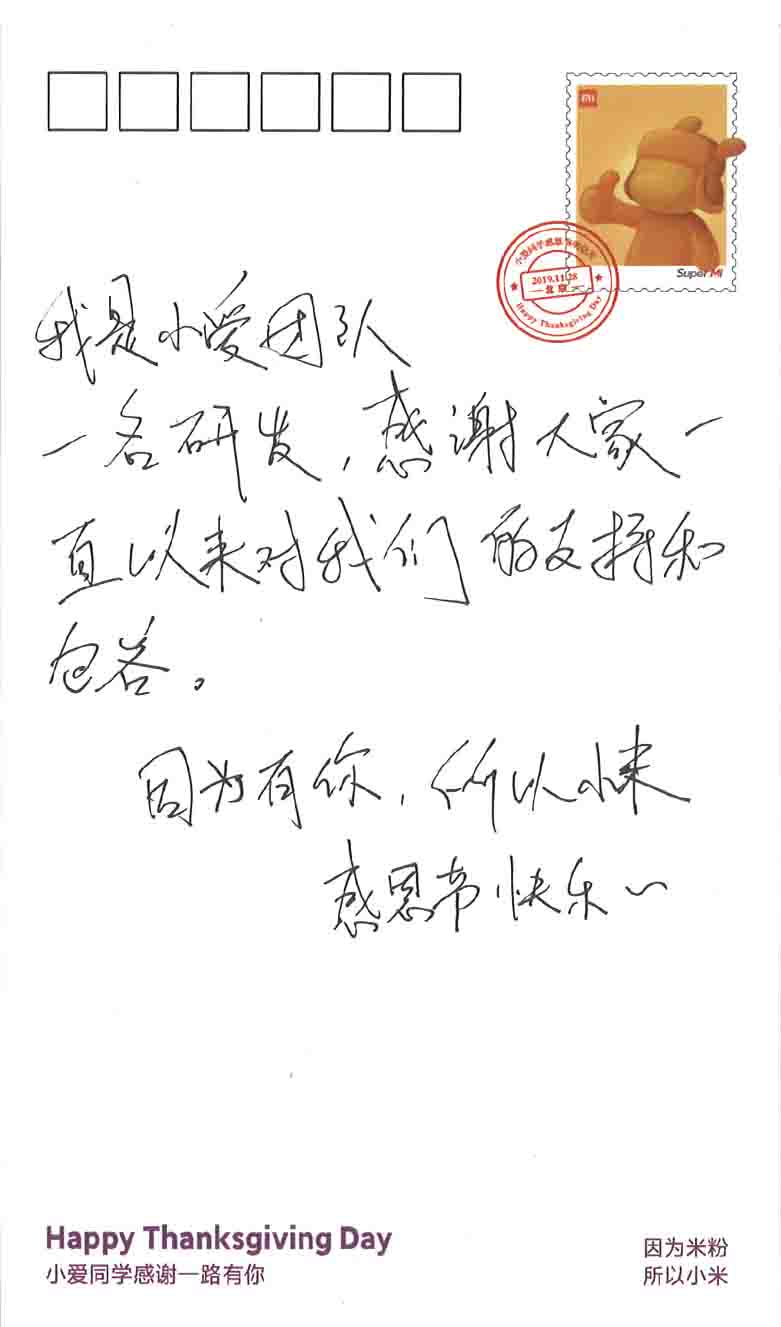 MI
Super MI
2019.11.28
北京
Happy Thanksgiving Day
我是小爱团队
一名研发，感谢大家一
直以来对我们的支持和
包容。
因为有你，所以小米
感恩节快乐~
Happy Thanksgiving Day
小爱同学感谢一路有你
因为米粉
所以小米